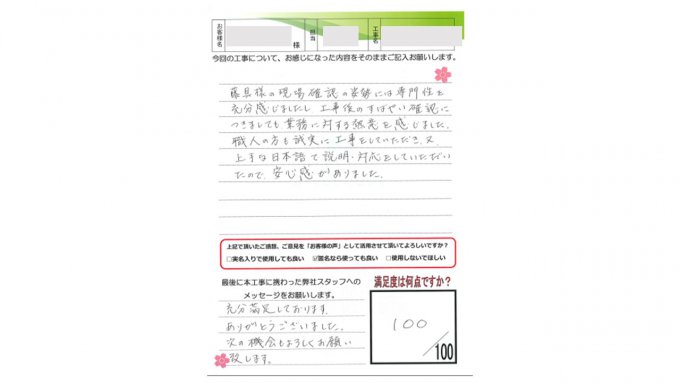 お客様名
様
担当
工事名
今回の工事について、お感じになった内容をそのままご記入お願いします。
藤具様の現場確認の姿勢には専門性を
充分感じましたし、工事後のすばやい確認に
つきましても業務に対する熱意を感じました。
職人の方も誠実に工事をしていただき、又、
上手な日本語で説明・対応をしていただい
たので、安心感がありました。
上記で頂いたご感想、ご意見を「お客様の声」として活用させて頂いてよろしいですか？
□実名入りで使用しても良い ☑匿名なら使っても良い □使用しないでほしい
最後に本工事に携わった弊社スタッフへの
メッセージをお願いします。
充分満足しております。
ありがとうございました。
次の機会もよろしくお願い
致します。
満足度は何点ですか？
100
/100